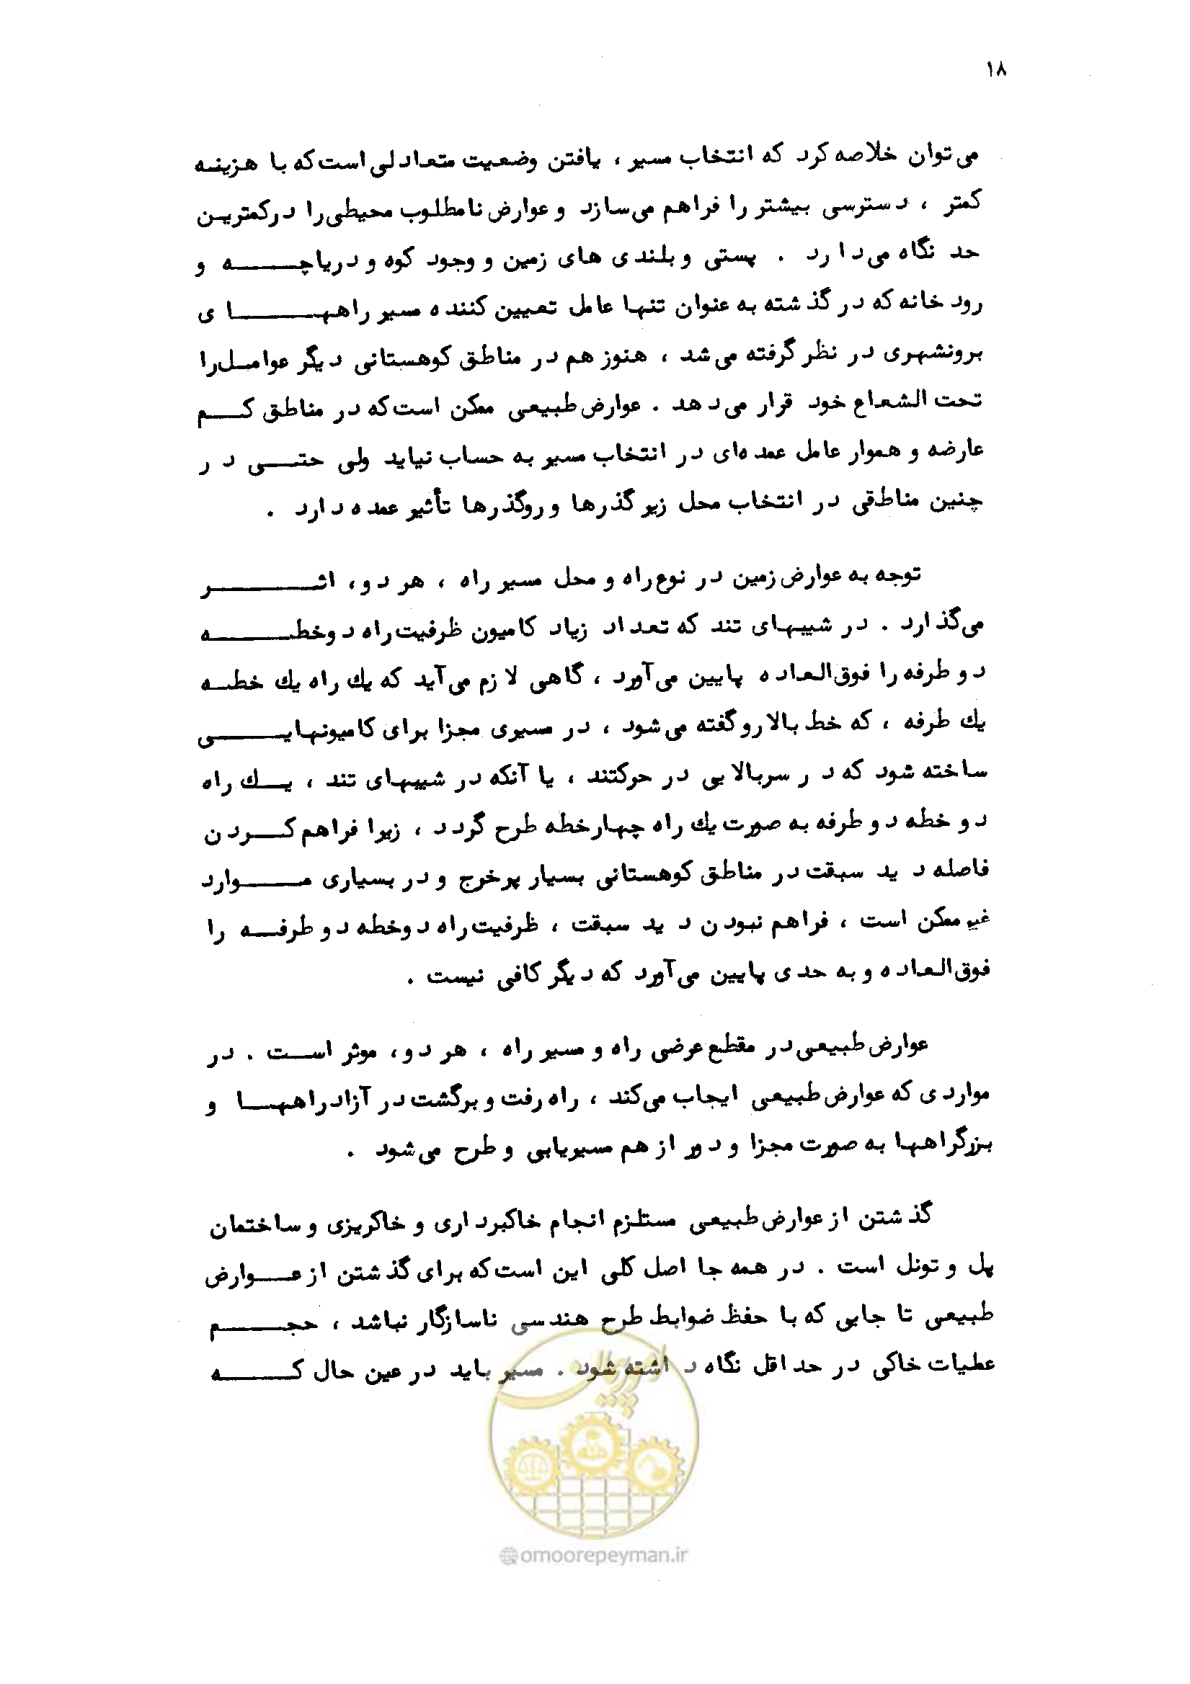 ۱۸
می‌توان خلاصه کرد که انتخاب مسیر ، یافتن وضعیت متعادلی است که با هزینه
کمتر ، دسترسی بیشتر را فراهم می‌سازد و عوارض نامطلوب محیطی را در کمترین
حد نگاه می‌دارد . پستی و بلندی های زمین و وجود کوه و دریاچه و
رودخانه که در گذشته به عنوان تنها عامل تعیین کننده مسیر راههای
برونشهری در نظر گرفته می‌شد ، هنوز هم در مناطق کوهستانی دیگر عوامل را
تحت الشعاع خود قرار می‌دهد . عوارض طبیعی ممکن است که در مناطق کم
عارضه و هموار عامل عمده‌ای در انتخاب مسیر به حساب نیاید ولی حتی در
چنین مناطقی در انتخاب محل زیرگذرها و روگذرها تأثیر عمده دارد .
توجه به عوارض زمین در نوع راه و محل مسیر راه ، هر دو، اثر
می‌گذارد . در شیبهای تند که تعداد زیاد کامیون ظرفیت راه دوخطه
دو طرفه را فوق‌العاده پایین می‌آورد ، گاهی لازم می‌آید که یك راه یك خطه
یك طرفه ، که خط بالارو گفته می‌شود ، در مسیری مجزا برای کامیونهایی
ساخته شود که در سربالایی در حرکتند ، یا آنکه در شیبهای تند ، یك راه
دو خطه دو طرفه به صورت یك راه چهارخطه طرح گردد ، زیرا فراهم کردن
فاصله دید سبقت در مناطق کوهستانی بسیار پرخرج و در بسیاری موارد
غیر ممکن است ، فراهم نبودن دید سبقت ، ظرفیت راه دوخطه دو طرفه را
فوق‌العاده و به حدی پایین می‌آورد که دیگر کافی نیست .
عوارض طبیعی در مقطع عرضی راه و مسیر راه ، هر دو، موثر است . در
مواردی که عوارض طبیعی ایجاب می‌کند ، راه رفت و برگشت در آزادراهها و
بزرگراهها به صورت مجزا و دور از هم مسیریابی و طرح می‌شود .
گذشتن از عوارض طبیعی مستلزم انجام خاکبرداری و خاکریزی و ساختمان
پل و تونل است . در همه جا اصل کلی این است که برای گذشتن از عوارض
طبیعی تا جایی که با حفظ ضوابط طرح هندسی ناسازگار نباشد ، حجم
عملیات خاکی در حداقل نگاه داشته شود . مسیر باید در عین حال که
امور پیمان
@omoorepeyman.ir